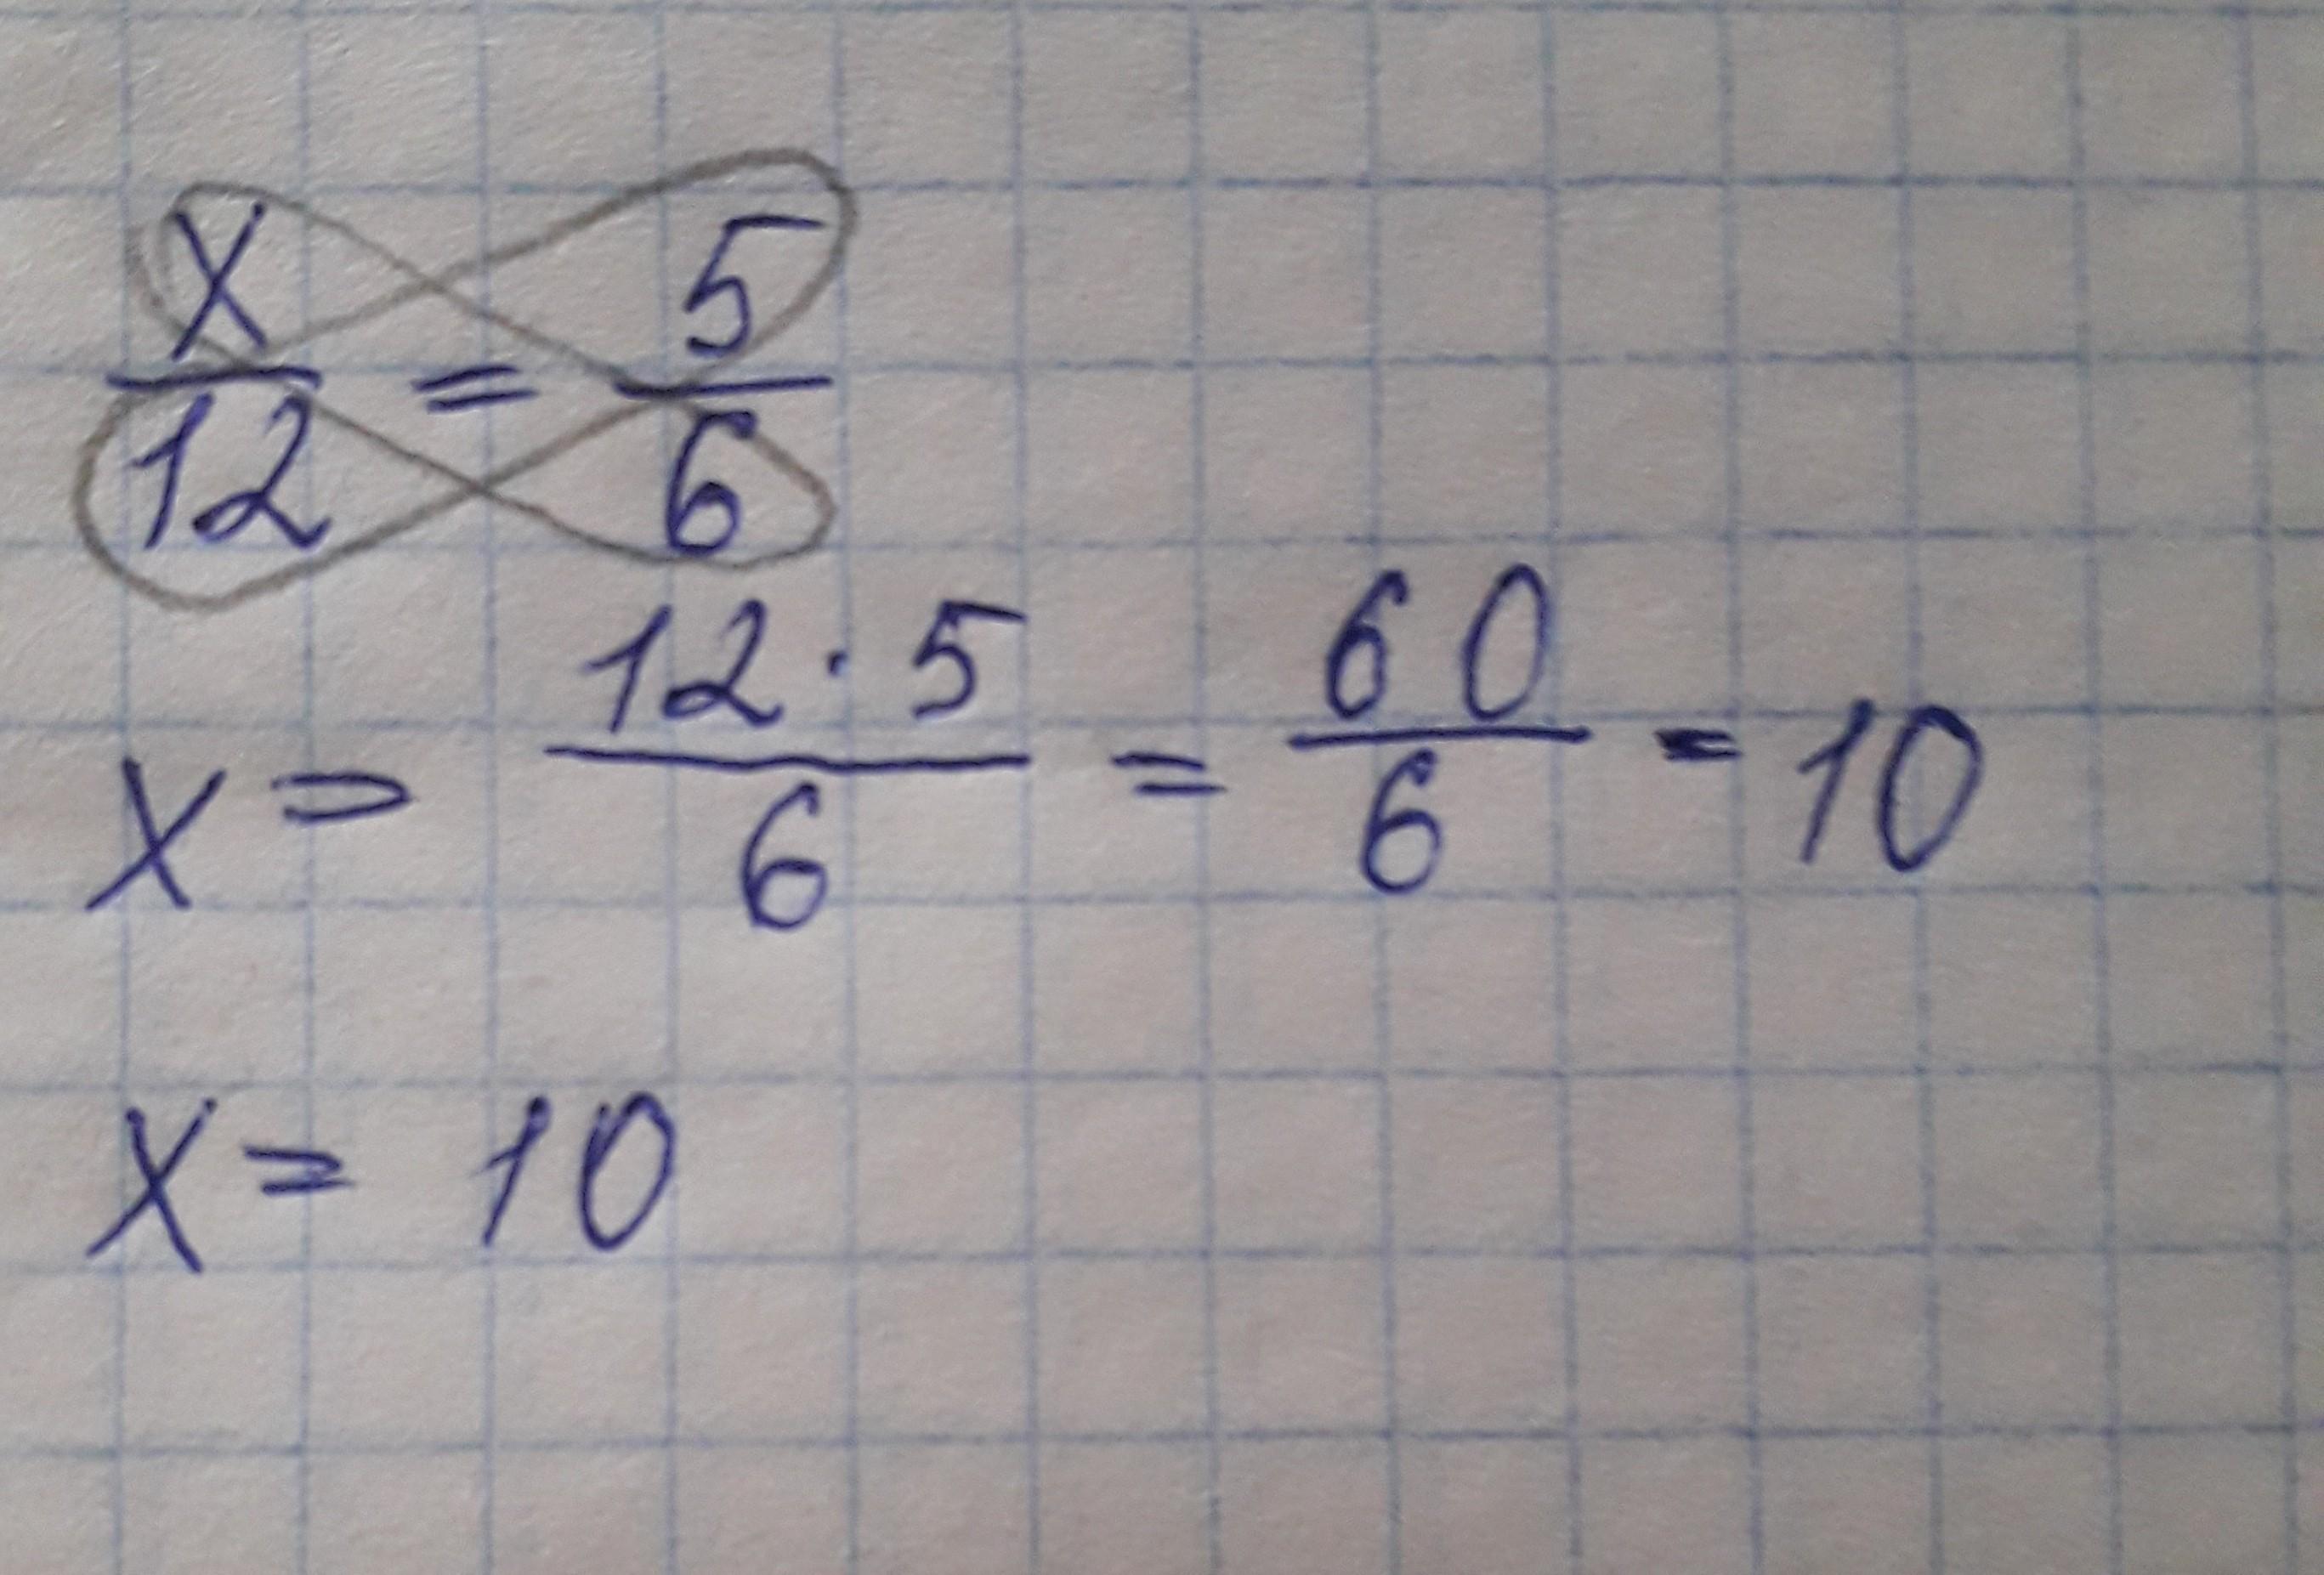 x/12 = 5/6
x = 12·5/6 = 60/6 = 10
x = 10